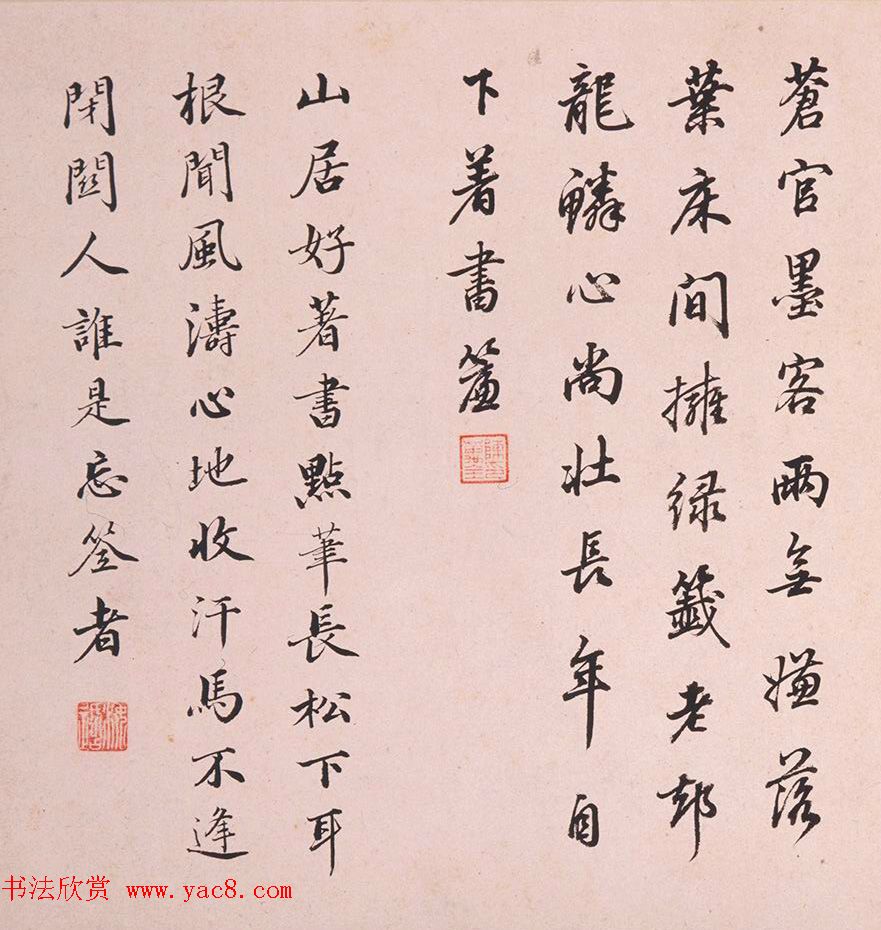 蒼官墨客兩無嫌落
葉床間擁綠籤老却
龍鱗心尚壯長年自
下着書簾
山居好著書點筆長松下耳
根聞風濤心地收汗馬不逢
閉關人誰是忘筌者
书法欣赏 www.yac8.com